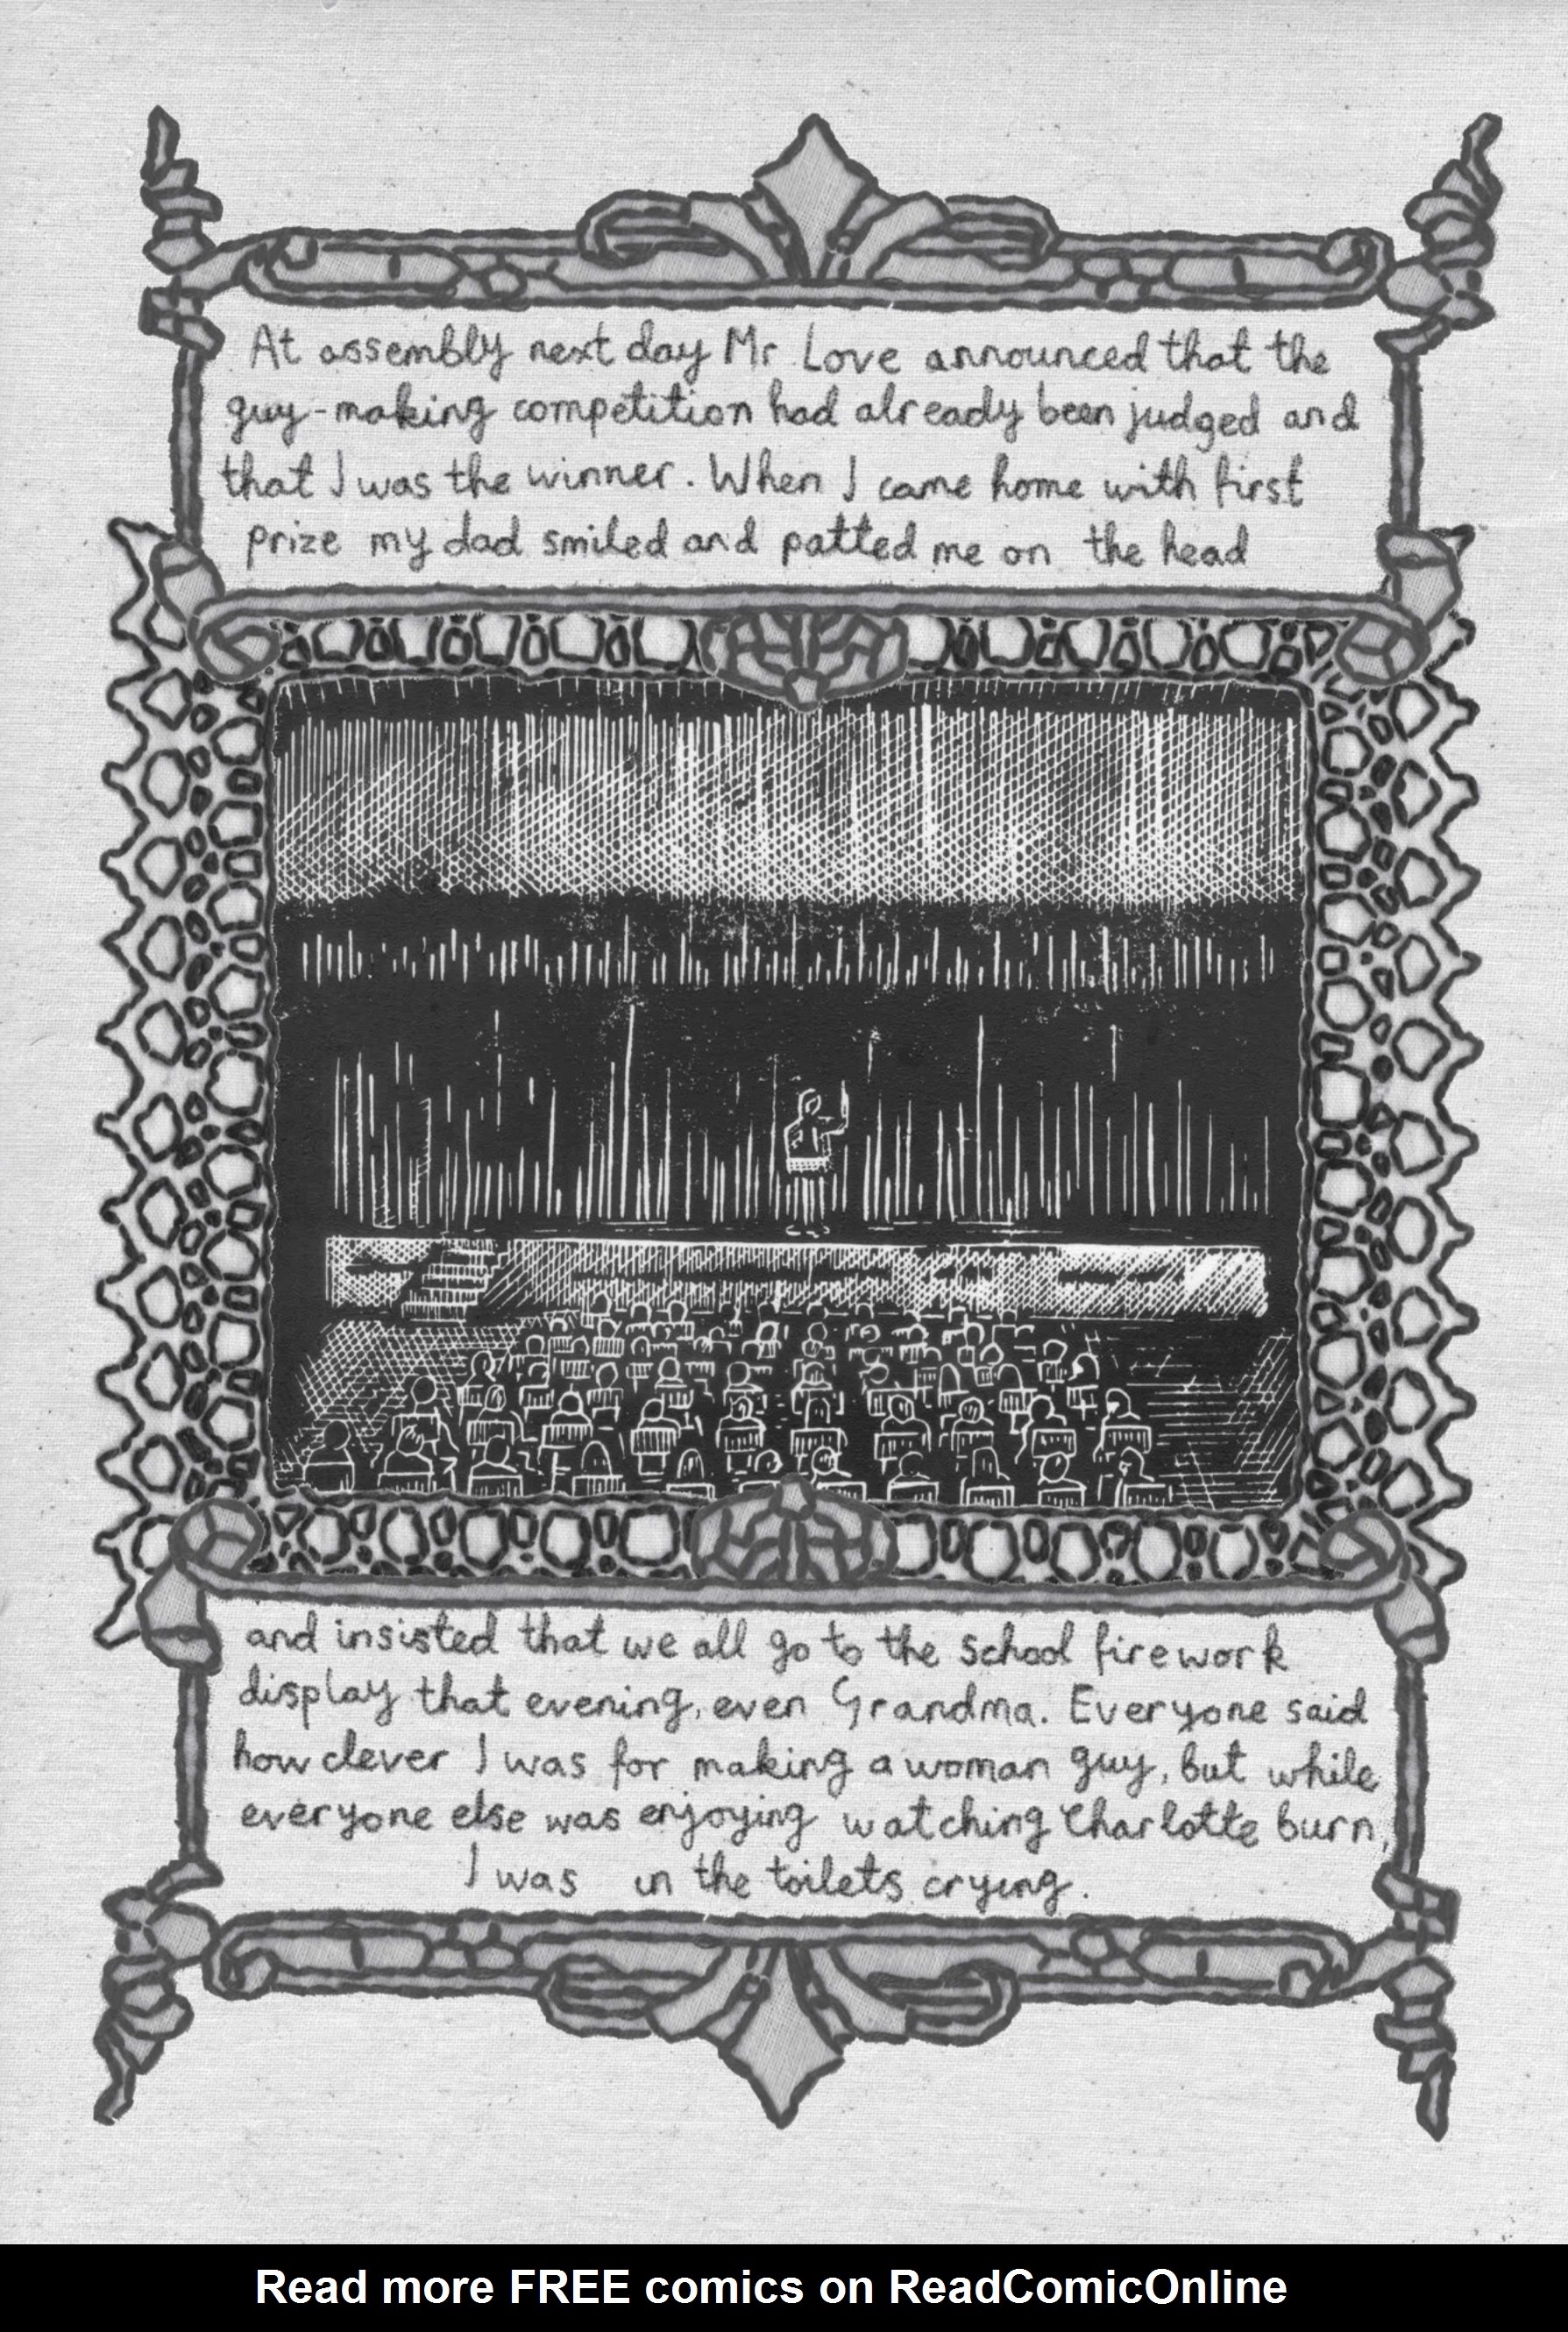 At assembly next day Mr Love announced that the
guy-making competition had already been judged and
that I was the winner. When I came home with first
prize my dad smiled and patted me on the head
and insisted that we all go to the school firework
display that evening, even Grandma. Everyone said
how clever I was for making a woman guy, but while
everyone else was enjoying watching Charlotte burn,
I was in the toilets crying.
Read more FREE comics on ReadComicOnline